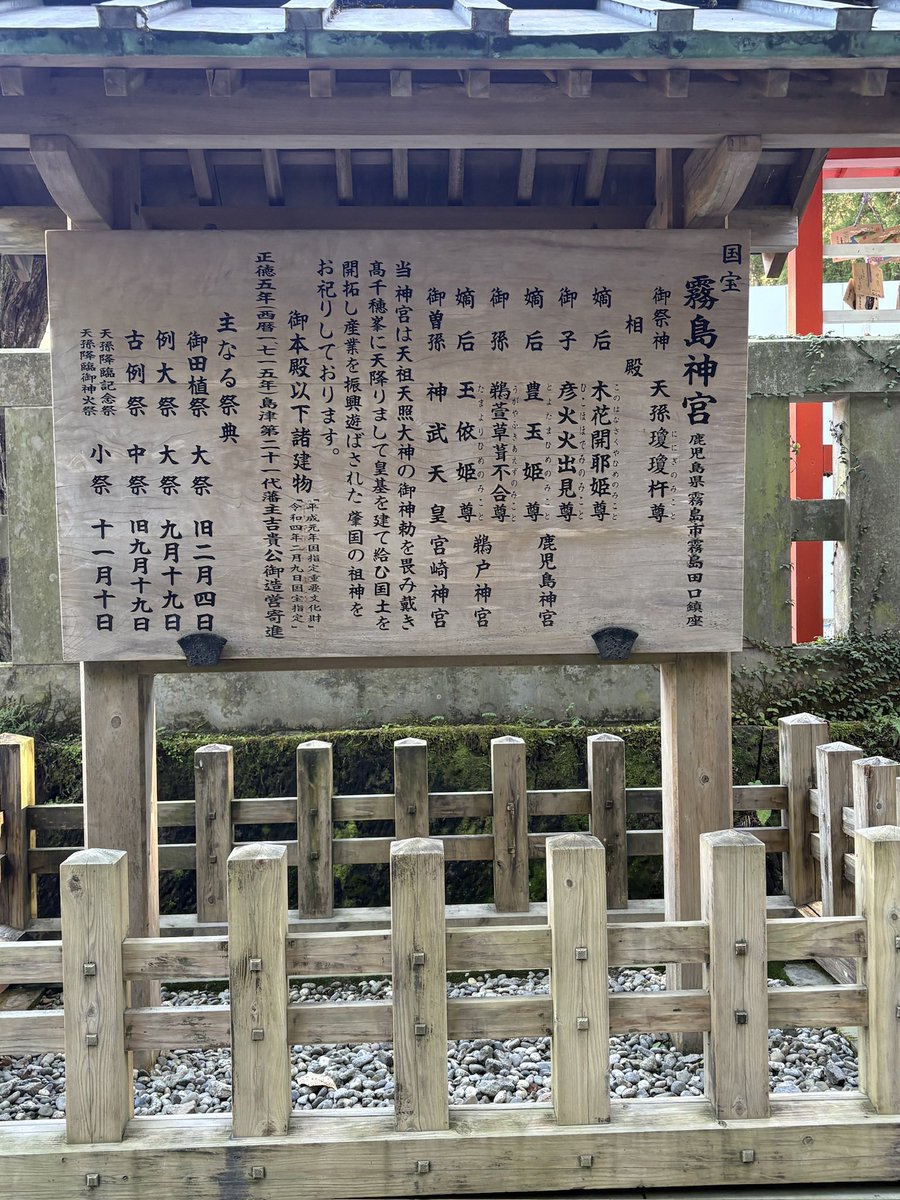 国宝
霧島神宮 鹿児島県霧島市霧島田口鎮座
御祭神 天孫瓊瓊杵尊
ににぎのみこと
相殿
嫡后 木花開耶姫尊
このはなさくやひめのみこと
御子 彦火火出見尊 鹿児島神宮
ひこほほでみのみこと
嫡后 豊玉姫尊
とよたまひめのみこと
御孫 鵜萱草葺不合尊 鵜戸神宮
うがやふきあえずのみこと
嫡后 玉依姫尊
たまよりひめのみこと
御曽孫 神武天皇 宮崎神宮
当神宮は天祖天照大神の御神勅を畏み戴き
高千穂峯に天降りまして皇基を建て給む国土を
開拓し産業を振興遊ばされた肇国の祖神を
お祀りしております。
御本殿以下諸建物
平成元年国指定重要文化財
令和四年二月九日国宝指定
正徳五年(西暦一七一五年)島津第二十一代藩主吉貴公御造営寄進
主なる祭典
御田植祭 大祭 旧二月四日
例大祭 大祭 九月十九日
古例祭 中祭 旧九月十九日
天孫降臨記念祭
天孫降臨御神火祭 小祭 十一月十日